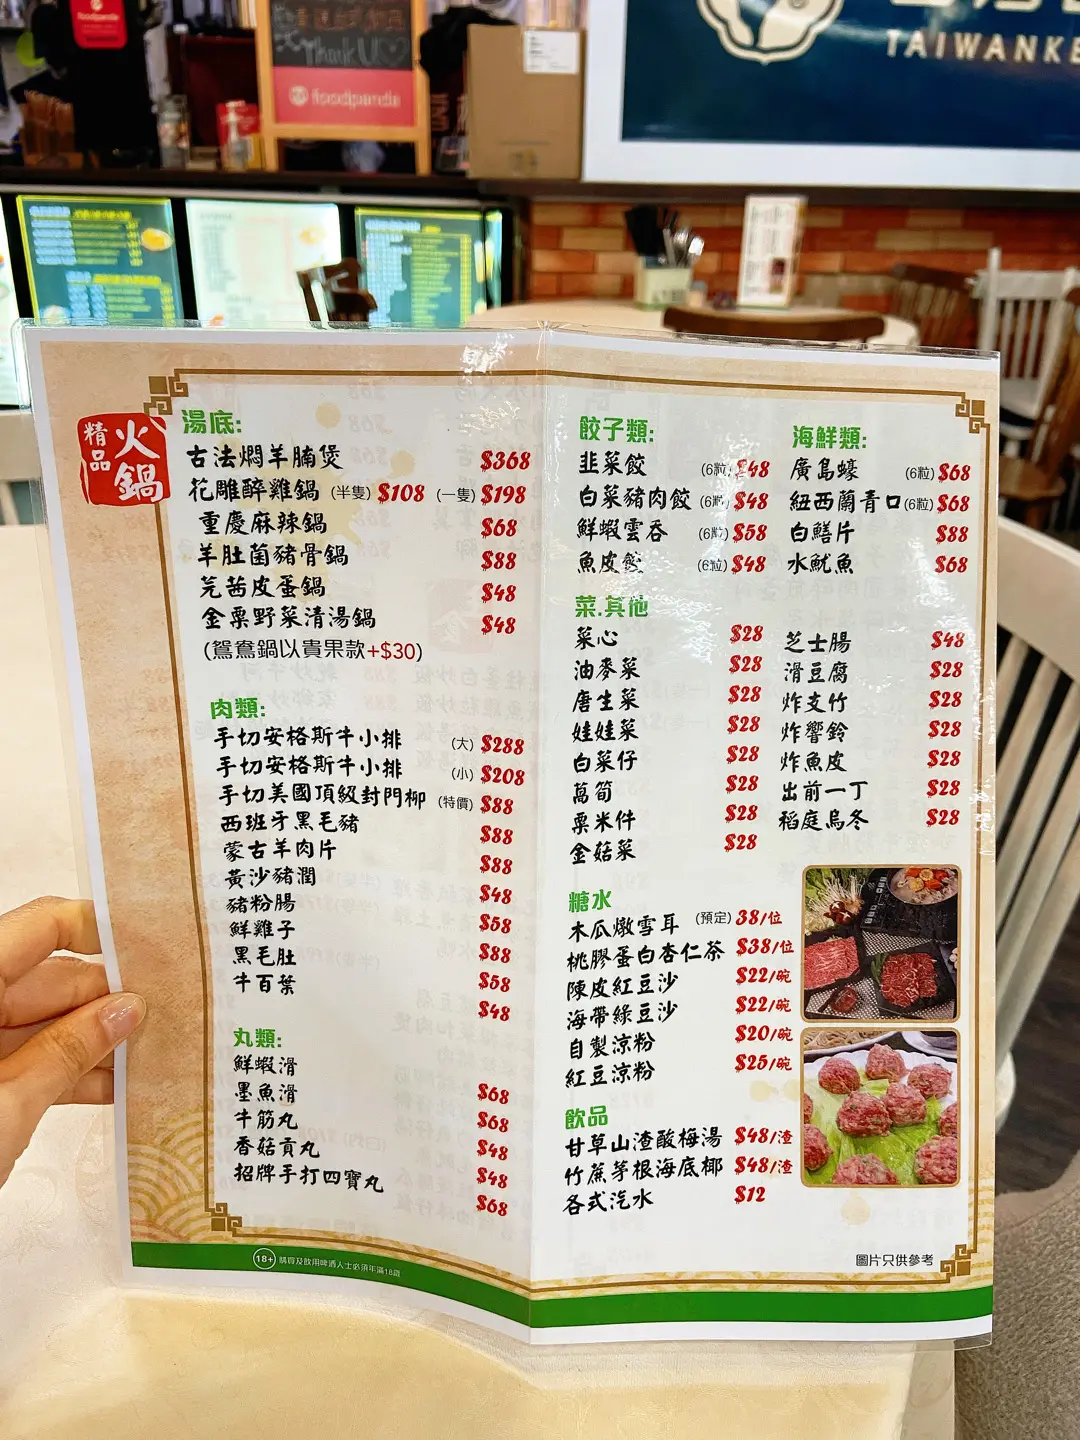 foodpanda
Thank U
foodpanda
TAIWANKE
精品
火鍋
湯底:
古法燜羊腩煲 $368
花雕醉雞鍋 (半隻) $108 (一隻) $198
重慶麻辣鍋 $68
羊肚菌豬骨鍋 $88
芫茜皮蛋鍋 $48
金粟野菜清湯鍋 $48
(鴛鴦鍋以貴果款+$30)
肉類:
手切安格斯牛小排 (大) $288
手切安格斯牛小排 (小) $208
手切美國頂級封門柳 (特價) $88
西班牙黑毛豬 $88
蒙古羊肉片 $88
黃沙豬潤 $48
豬粉腸 $58
鮮雞子 $88
黑毛肚 $58
牛百葉 $48
丸類:
鮮蝦滑 $68
墨魚滑 $68
牛筋丸 $48
香菇貢丸 $48
招牌手打四寶丸 $68
18+ 購買及飲用啤酒人士必須年滿18歲
餃子類:
韭菜餃 (6粒) $48
白菜豬肉餃 (6粒) $48
鮮蝦雲吞 (6粒) $58
魚皮餃 (6粒) $48
海鮮類:
廣島蠔 (6粒) $68
紐西蘭青口 (6粒) $68
白鱔片 $88
水魷魚 $68
菜.其他
菜心 $28
油麥菜 $28
唐生菜 $28
娃娃菜 $28
白菜仔 $28
萵筍 $28
粟米件 $28
金菇菜 $28
芝士腸 $48
滑豆腐 $28
炸支竹 $28
炸響鈴 $28
炸魚皮 $28
出前一丁 $28
稻庭烏冬 $28
糖水
木瓜燉雪耳 (預定) 38/位
桃膠蛋白杏仁茶 $38/位
陳皮紅豆沙 $22/碗
海帶綠豆沙 $22/碗
自製涼粉 $20/碗
紅豆涼粉 $25/碗
飲品
甘草山渣酸梅湯 $48/渣
竹蔗茅根海底椰 $48/渣
各式汽水 $12
圖片只供參考